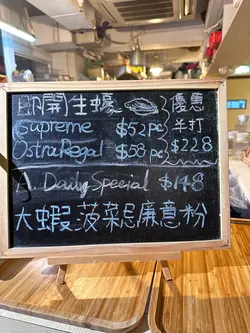 即開生蠔 優惠
Supreme $52pc 半打
OstraRegal $58pc $228
A. Daily Special $148
大蝦菠菜忌廉意粉